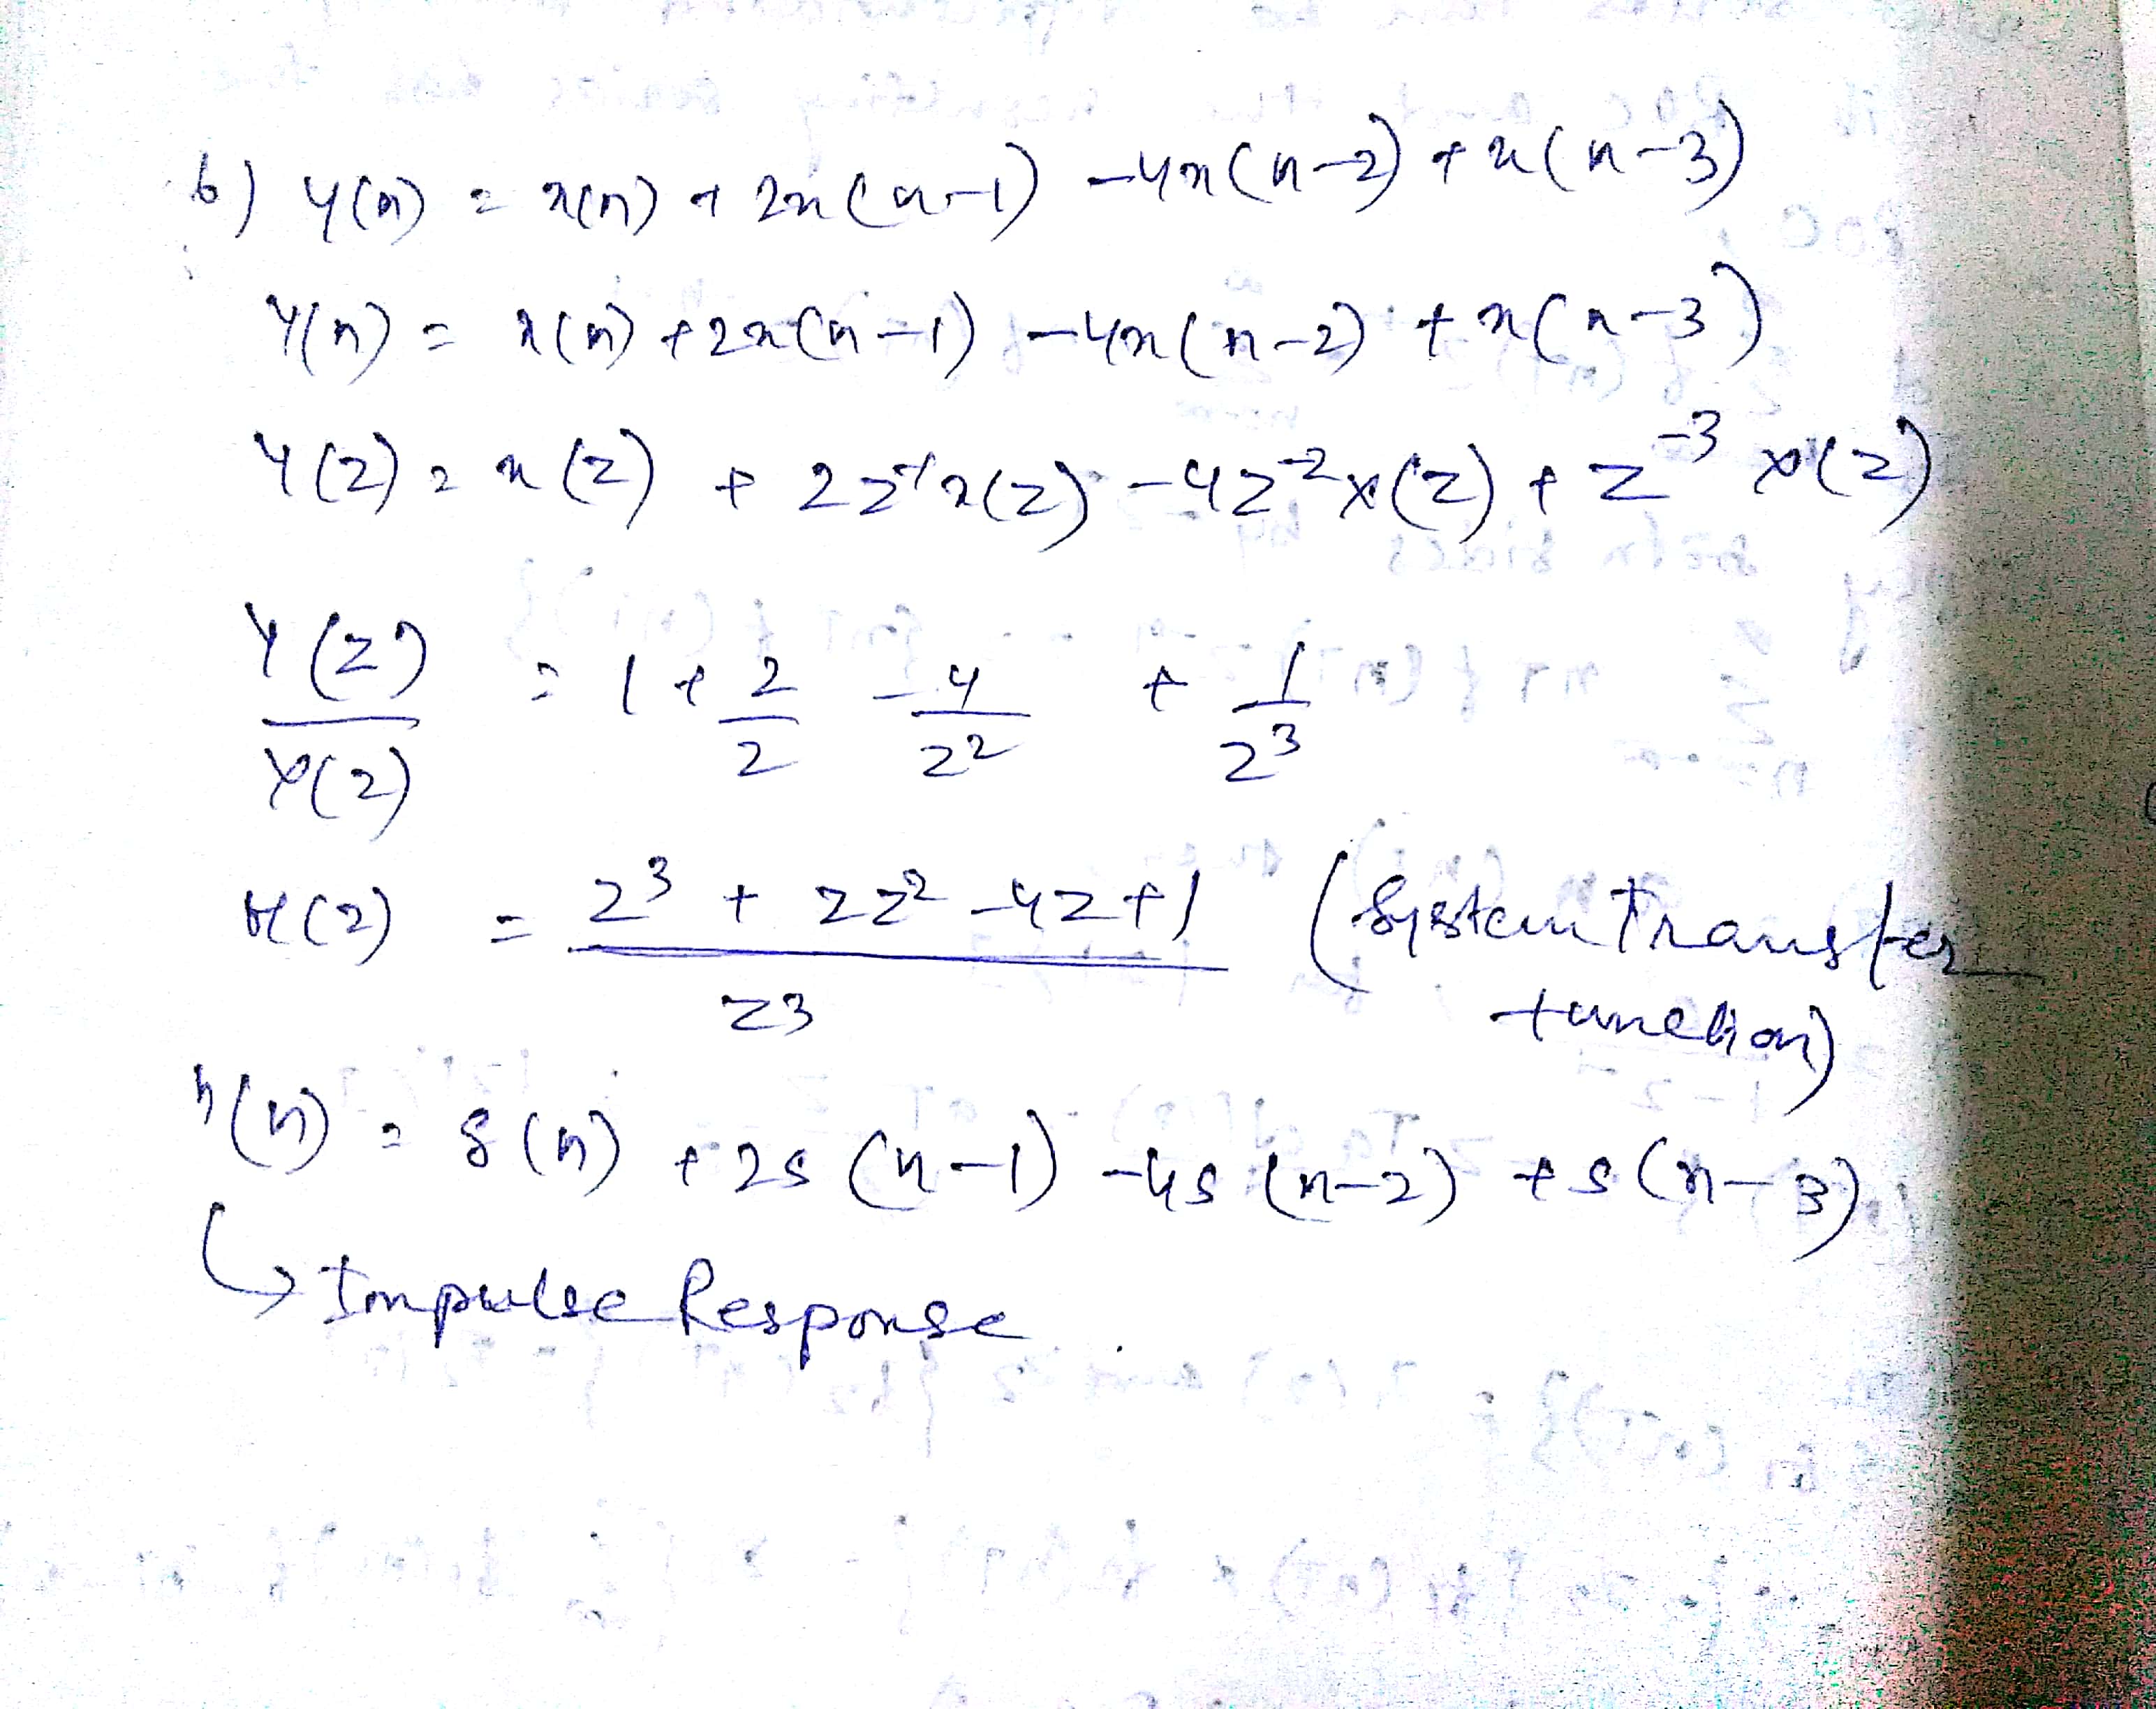 b) y(n) = x(n) + 2x(n-1) -4x(n-2) + x(n-3)
Y(n) = x(n) + 2x(n-1) -4x(n-2) + x(n-3)
Y(z) = x(z) + 2z⁻¹x(z) -4z⁻²x(z) + z⁻³ x(z)
Y(z)/X(z) = 1 + 2/z - 4/z² + 1/z³
H(z) = z³ + 2z² -4z+1 / z3 (System Transfer
function)
h(n) = δ(n) + 2δ(n-1) -4δ(n-2) + δ(n-3)
↳ Impulse Response.